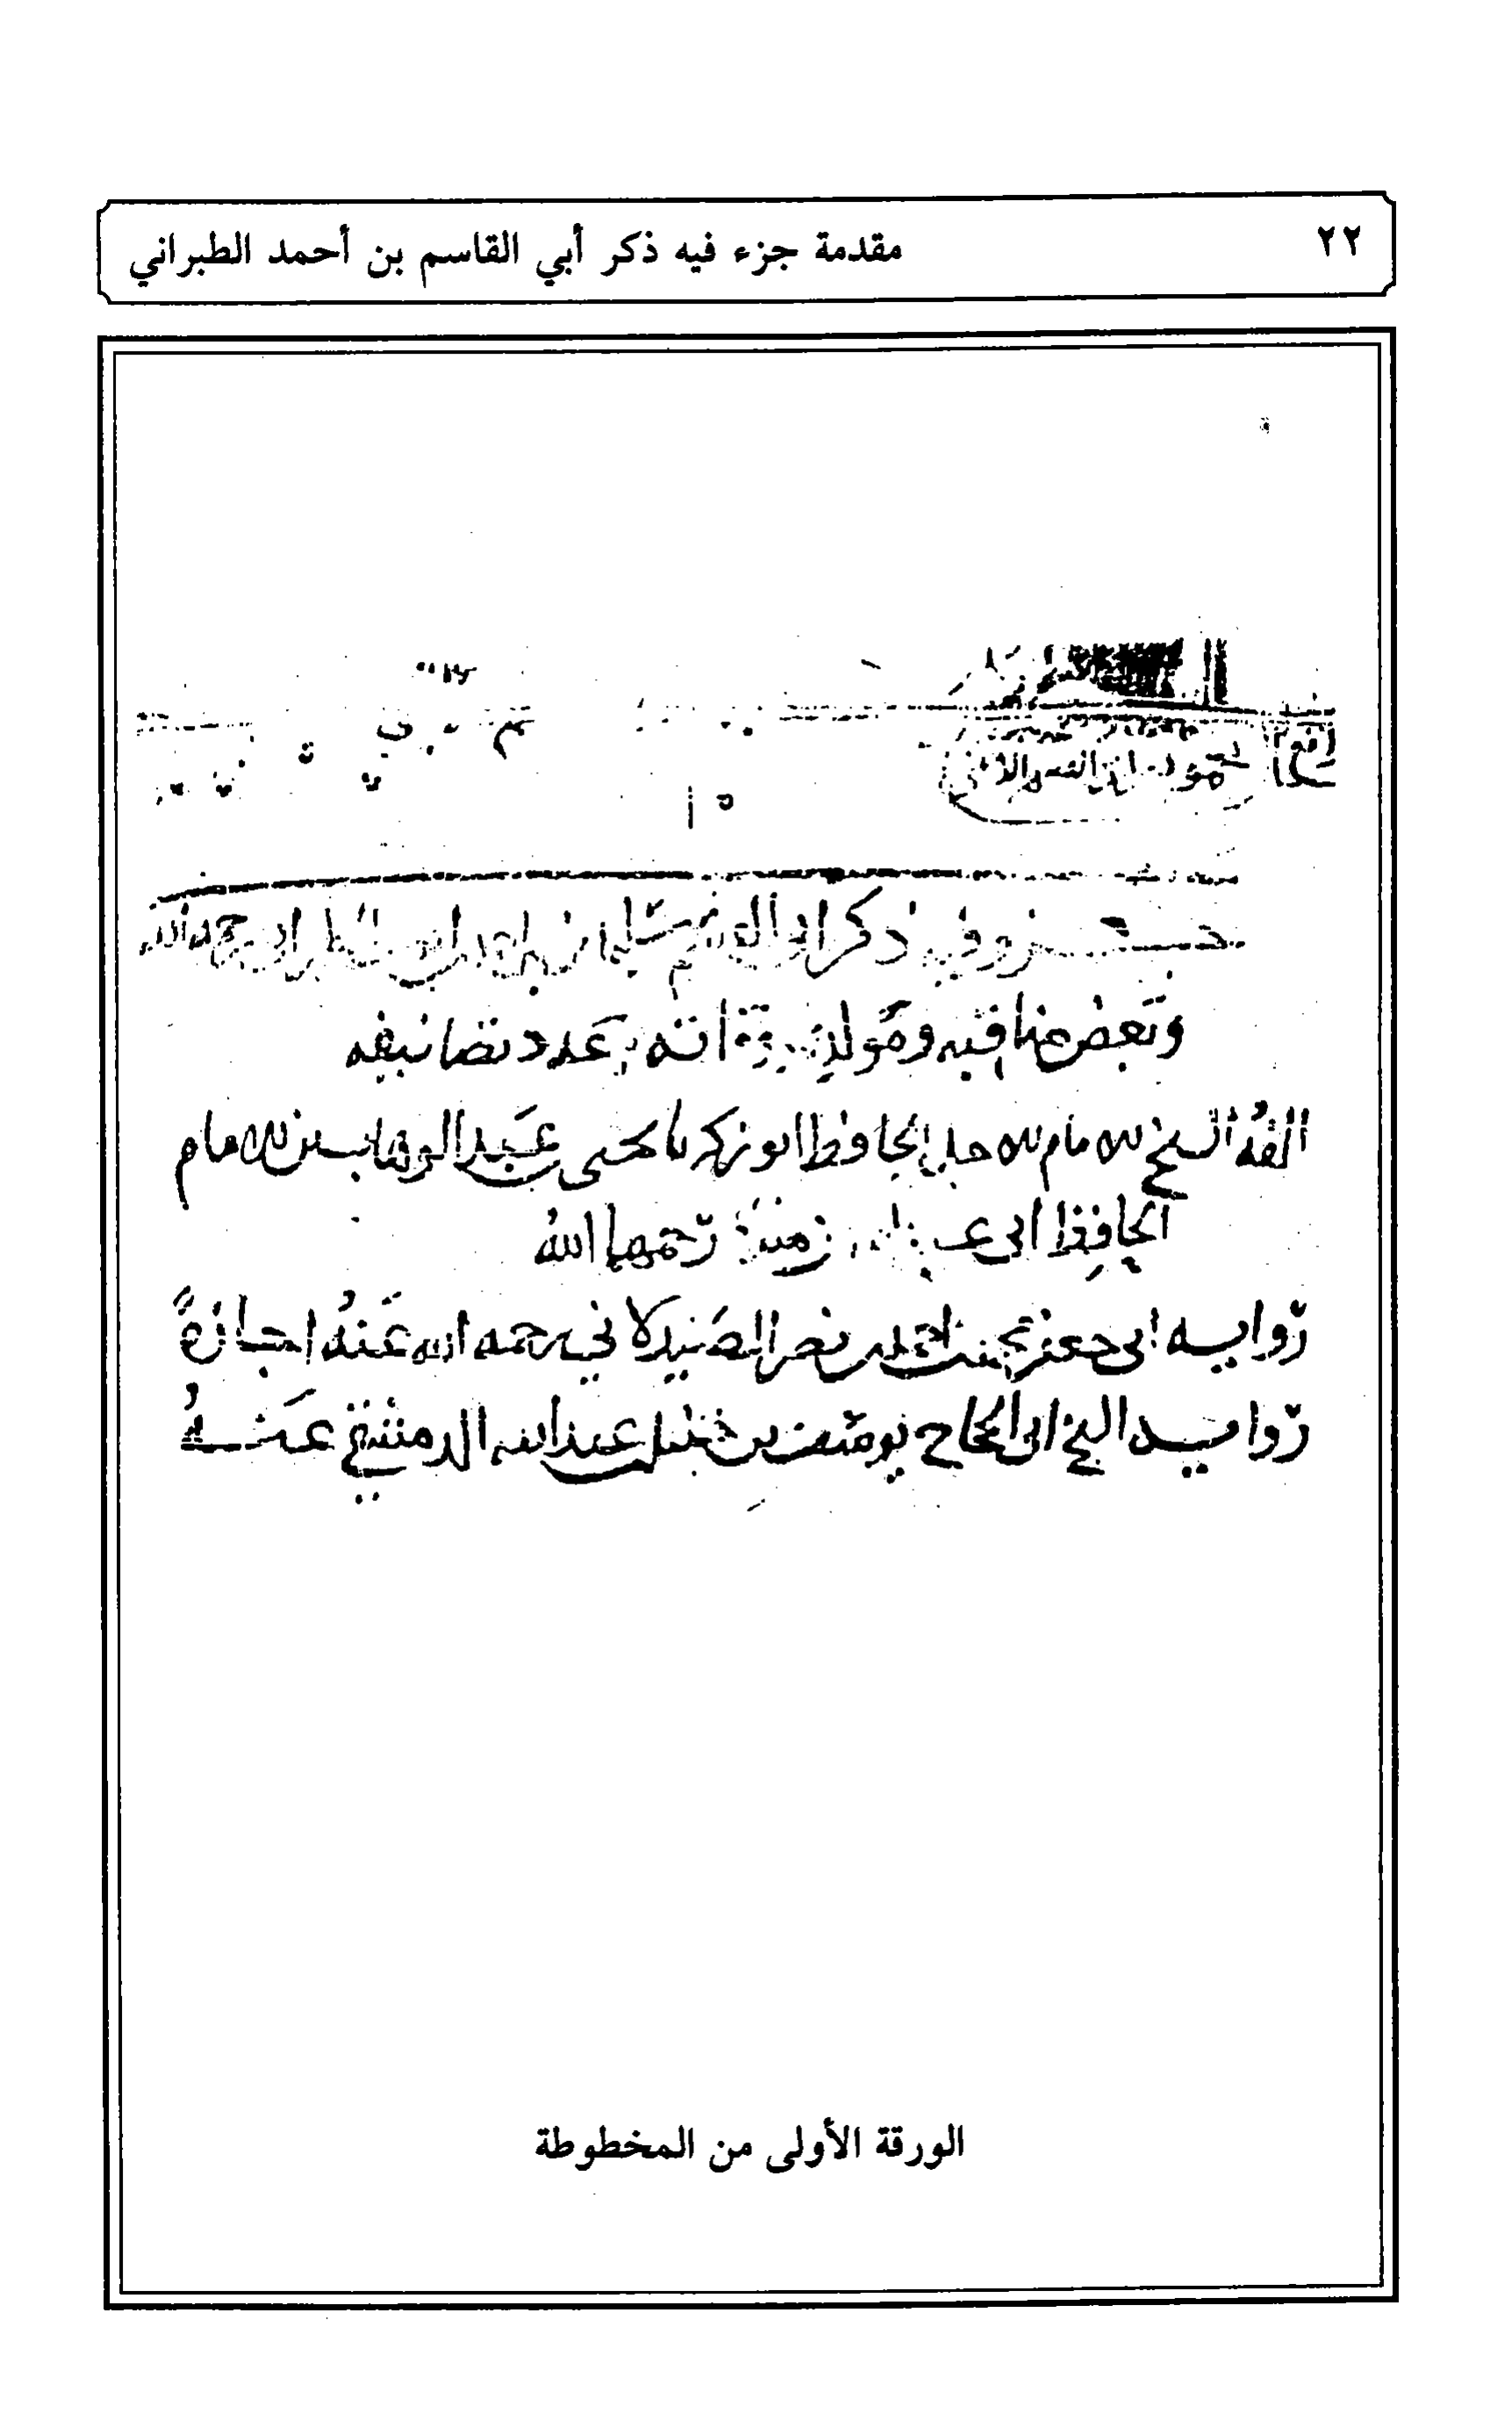 ٢٢
مقدمة جزء فيه ذكر أبي القاسم بن أحمد الطبراني
جزو فيه ذكر ابي القسم سليمان بن احمد بن ايوب الطبراني رحمه الله
وبعض مناقبه ومولده ووفاته وعدد تصانيفه
الفه الشيخ الامام الاجل الحافظ ابو زكريا يحيى بن عبد الوهاب بن الامام
الحافظ ابي عبد الله بن منده رحمهما الله
رواية ابي جعفر محمد بن احمد بن نصر الصيدلاني رحمه الله عنه اجازة
رواية الشيخ ابي الحجاج يوسف بن خليل بن عبد الله الدمشقي عنه
الورقة الأولى من المخطوطة